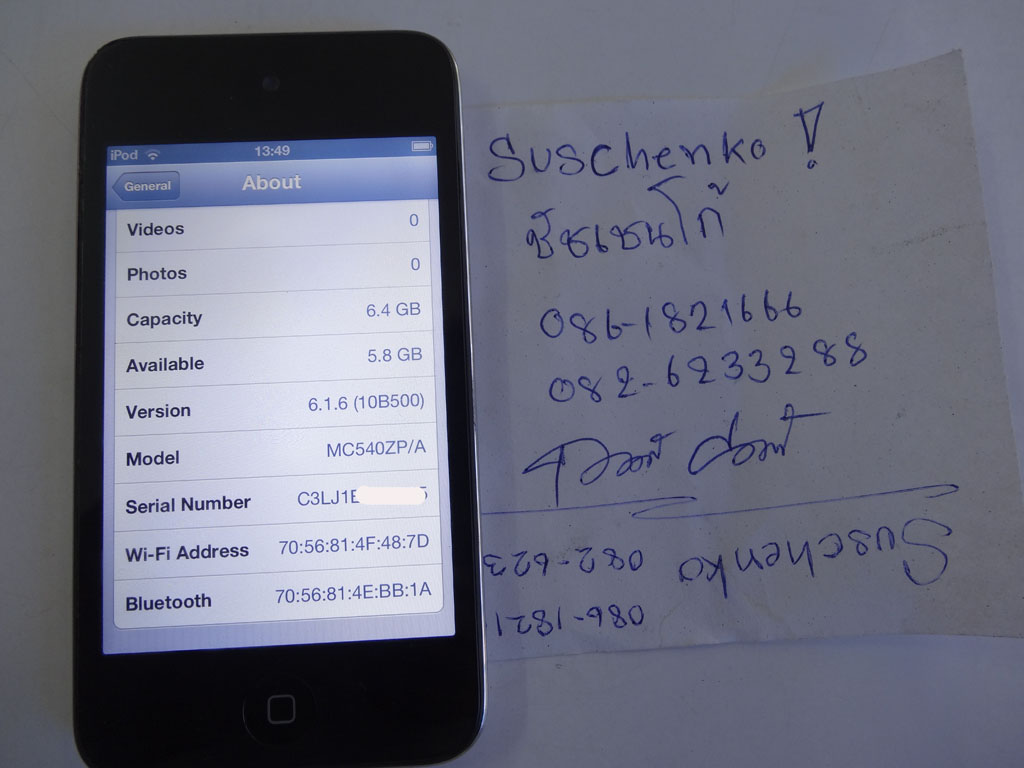 iPod 13:49
General About
Videos 0
Photos 0
Capacity 6.4 GB
Available 5.8 GB
Version 6.1.6 (10B500)
Model MC540ZP/A
Serial Number C3LJ1E 5
Wi-Fi Address 70:56:81:4F:48:7D
Bluetooth 70:56:81:4E:BB:1A
Suschenko !
ชัชเชนโก้
086-1821666
082-6233288
Suschenko 082-623
086-1821